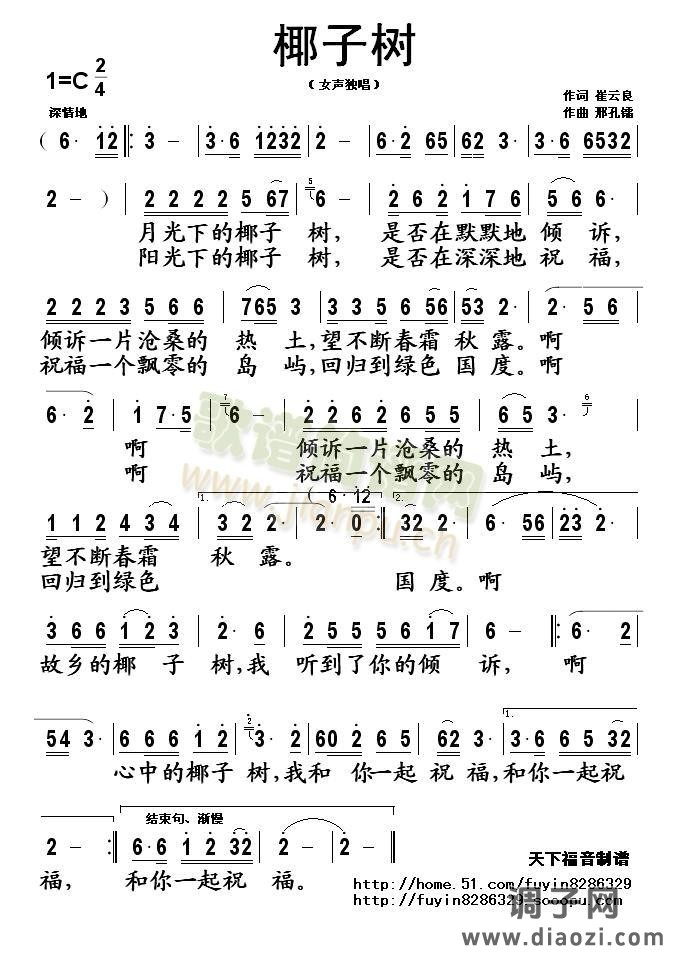 椰子树
（女声独唱）
1=C 2/4
作词 崔云良
作曲 邢孔镭
深情地
( 6· 12 3 - 3·6 1232 2 - 2·3 65 62 3 3·6 6532
2 - ) 2 2 2 2 5 67 6 - 2 6 2 1 7 6 5 6 6·
月光下的椰子 树， 是否在默默地 倾 诉，
阳光下的椰子 树， 是否在深深地 祝 福，
2 2 2 3 5 6 6 6 765 3 3 3 5 6 56 53 2· 2· 5 6
倾诉一片沧桑的 热 土，望不断春霜 秋 露。啊
祝福一个飘零的 岛 屿，回归到绿色 国 度。啊
6· 2 1 7·5 6 - 2 2 6 2 6 5 5 6 5 3·
啊 倾诉一片沧桑的 热 土，
啊 祝福一个飘零的 岛 屿，
( 6·12 )
1 1 2 4 3 4 3 2 2· 2· 0 32 2· 6· 56 23 2·
1. 2.
望不断春霜 秋 露。
回归到绿色 国 度。啊
3 6 6 1 2 3 2· 6 3 5 5 5 6 1 7 6 - 6· 2
故乡的椰 子 树，我 听到了你的倾 诉， 啊
54 3· 6 6 6 1 2 3· 2 60 2 6 5 62 3· 3·3 6 5 32
1.
心中的椰子 树，我和 你一起 祝 福，和你一起祝
2 - 6·6 1 2 32 2 - 2 -
结束句、渐慢
福， 和你一起祝 福。
天下福音制谱
http://home.51.com/fuyin8286329
http://fuyin8286329 sooopu.com
歌谱简谱网
www.jianpu.cn
调子网
www.diaozi.com